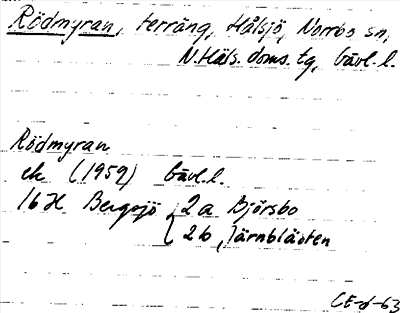 Rödmyran, terräng, Hålsjö, Norrbo sn,
N. Häls. doms. tg, Gävl. l.
Rödmyran
ek (1959) Gävl. l.
16H Bergsjö 2a Björsbo
2b Järnblästen
CE-d-63